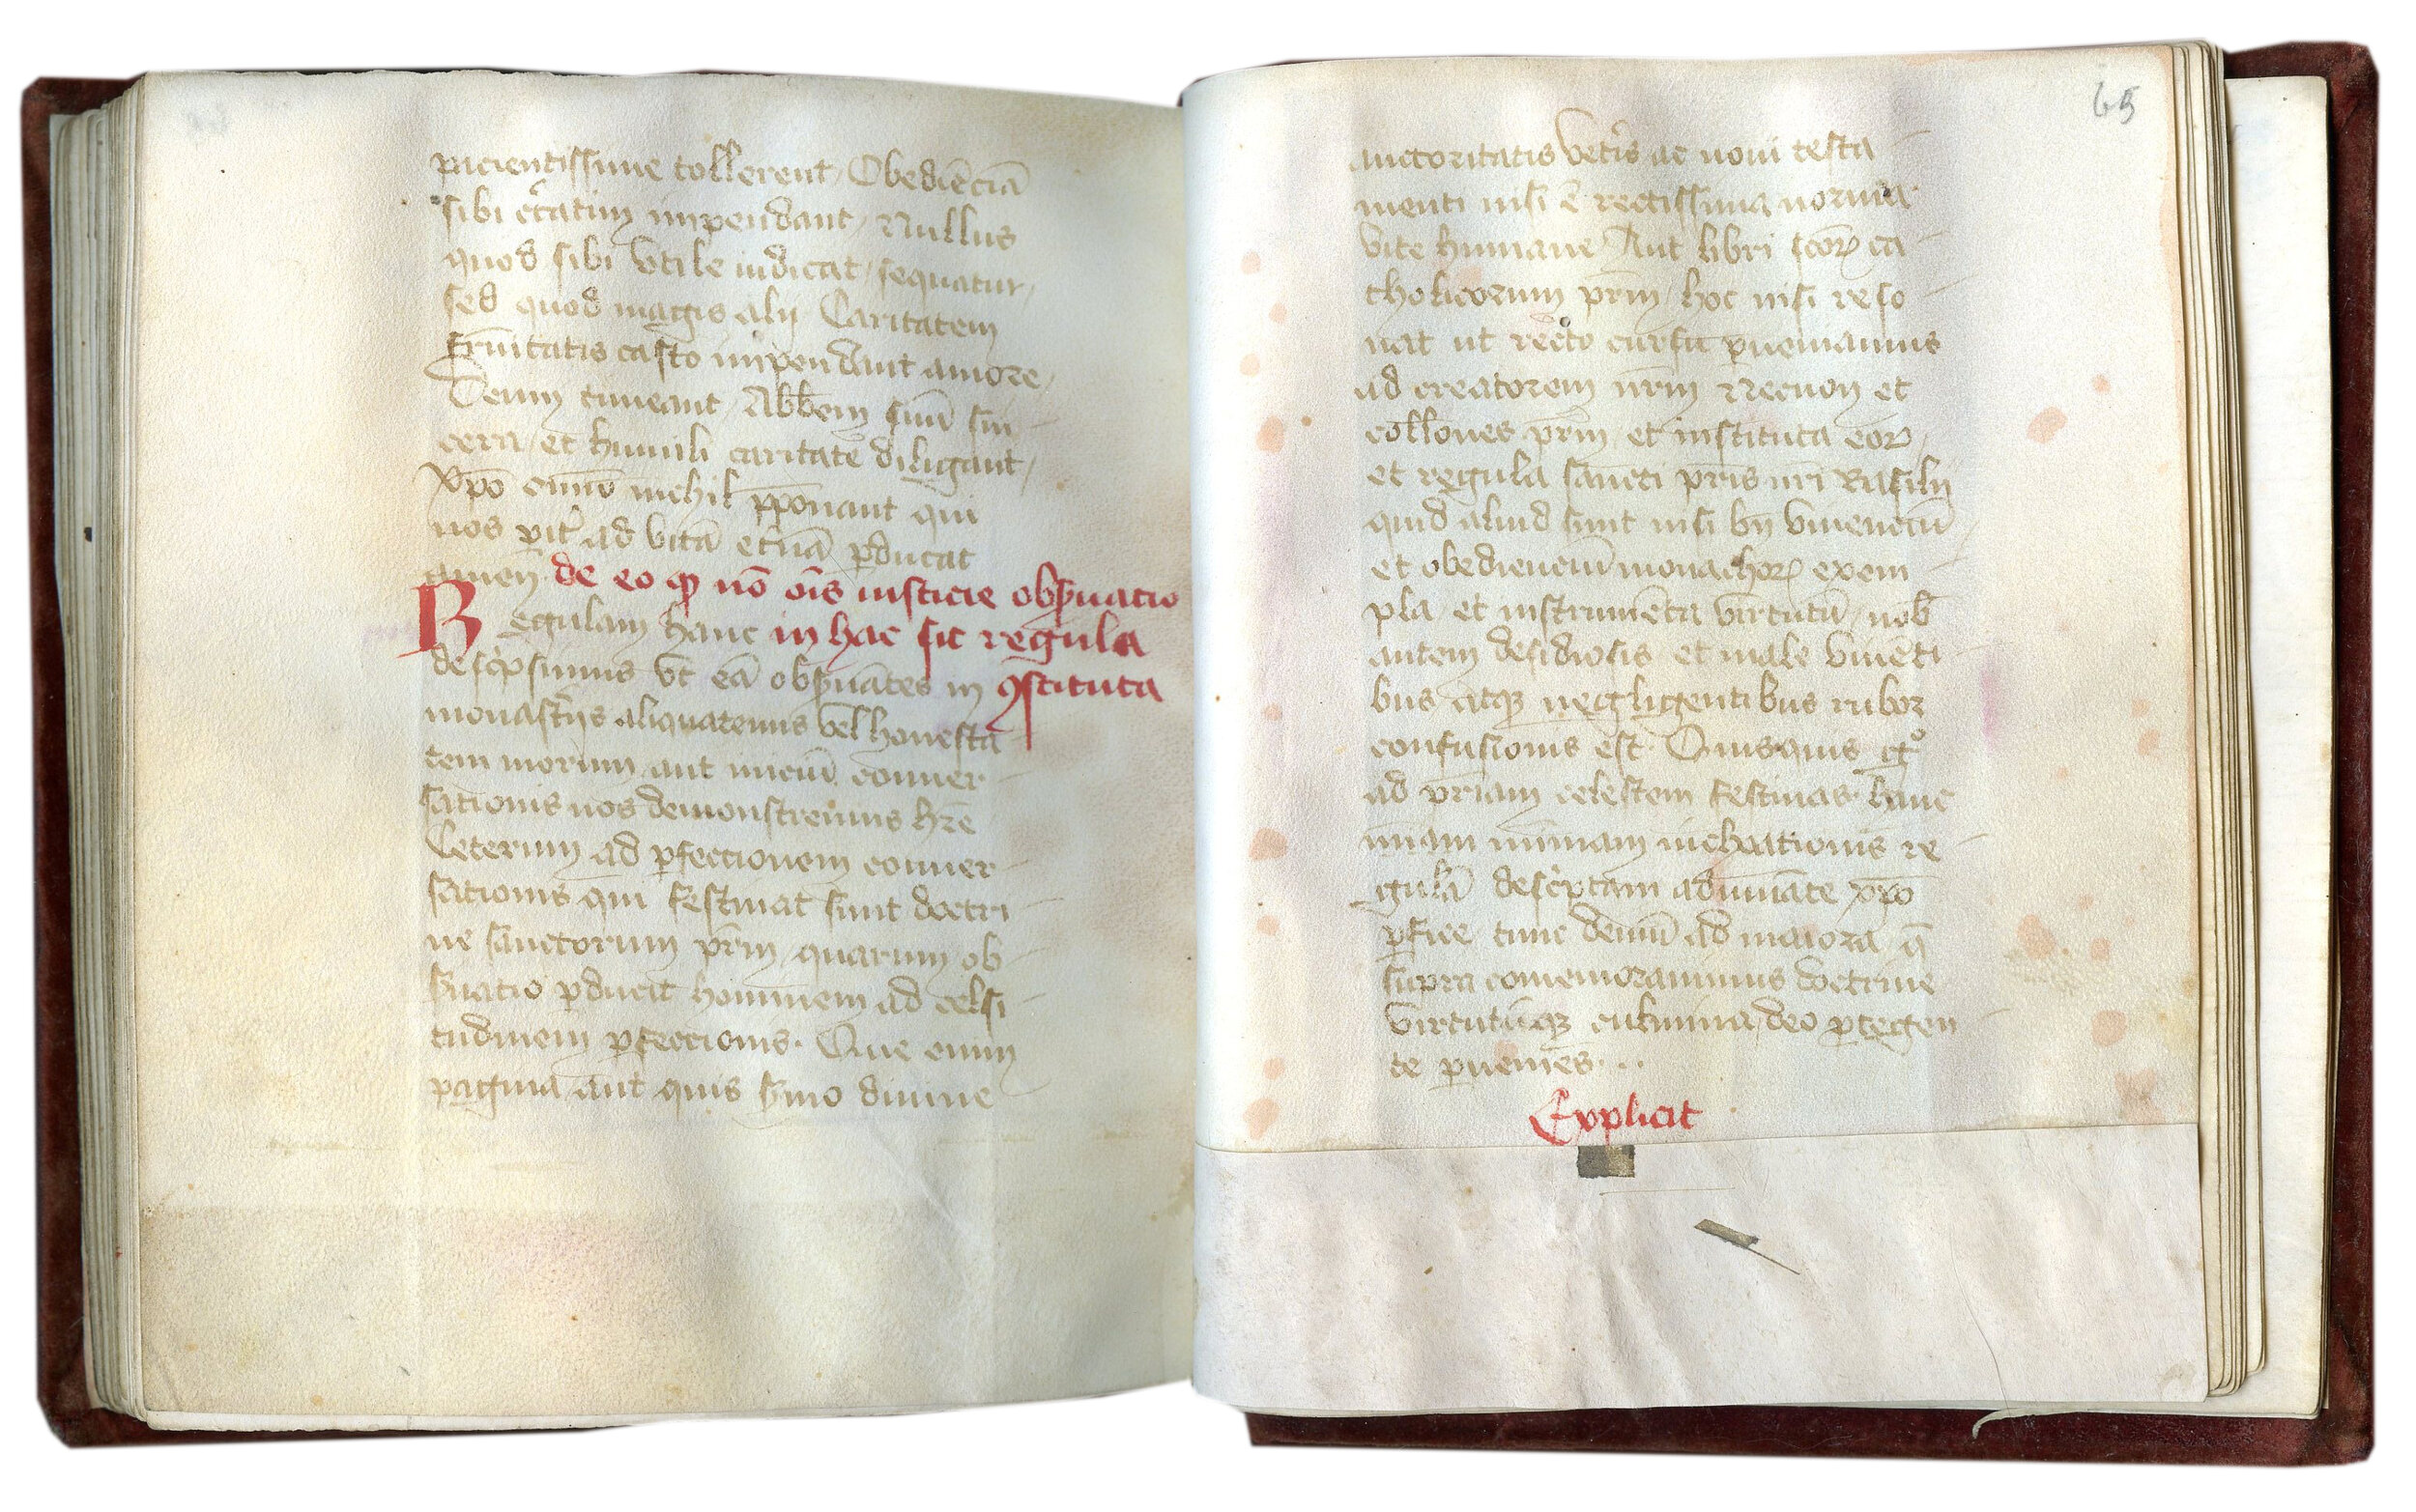 pacientissime tollerent / Obediēciā
sibi c̄tatim impendant / Nullus
quod sibi vtile iudicat / sequatur /
sed quod magis alij Caritatem
fr̄nitatis casto impendant amore /
Deum timeant / Abbem suū sin
cera / et humili caritate diligant /
xp̄o om̄io nichil p̄ponant qui
nos pit̄ ad vitā et̄nā ꝑducat
amen de eo ꝙ nō oīs iusticie obs̄uatio
Regulam hanc in hac sit regula
desc̄psimus vt eā obs̄uātes in ꝯstituta
monast̄ijs aliquatenus vel honesta
tem morum aut iniciū conuer
sationis nos demonstremus hr̄e
Ceterum ad ꝑfectionem conuer
sationis qui festinat sunt doctri
ne sanctorum pr̄m / quarum ob
s̄uatio ꝑducit hominem ad celsi
tudinem ꝑfectionis. Que enim
pagina aut quis s̄mo diuine
65
auctoritatis vet̄is ac noui testa
menti nisi ē rectissima norma
vite humane Aut libri scōꝝ ca
tholicorum pr̄m / hoc nisi reso
nat ut recto cursu ꝑueniamus
ad creatorem nr̄m Necnon et
coll̄ones pr̄m / et instituta eoꝝ /
et regula sancti pr̄is nr̄i Basilij
quid aliud sunt nisi bn̄ viuenciū
et obedienciū monachoꝝ exem
pla et instrumēta virtutū / nob̄
autem desidiosis et male viuēti
bus atqꝫ negligentibus rubor
confusionis est. Quisquis gͦ
ad pr̄iam celestem festinas hanc
minimam inchoationis re
gulā desc̄ptam adiuuāte xp̄o
ꝑfice tunc demū ad maiora q̄
supra comemorauimus doctrine
virtutūqꝫ culmina / deo ꝓtegen
te ꝑuenies. . .
Explicit